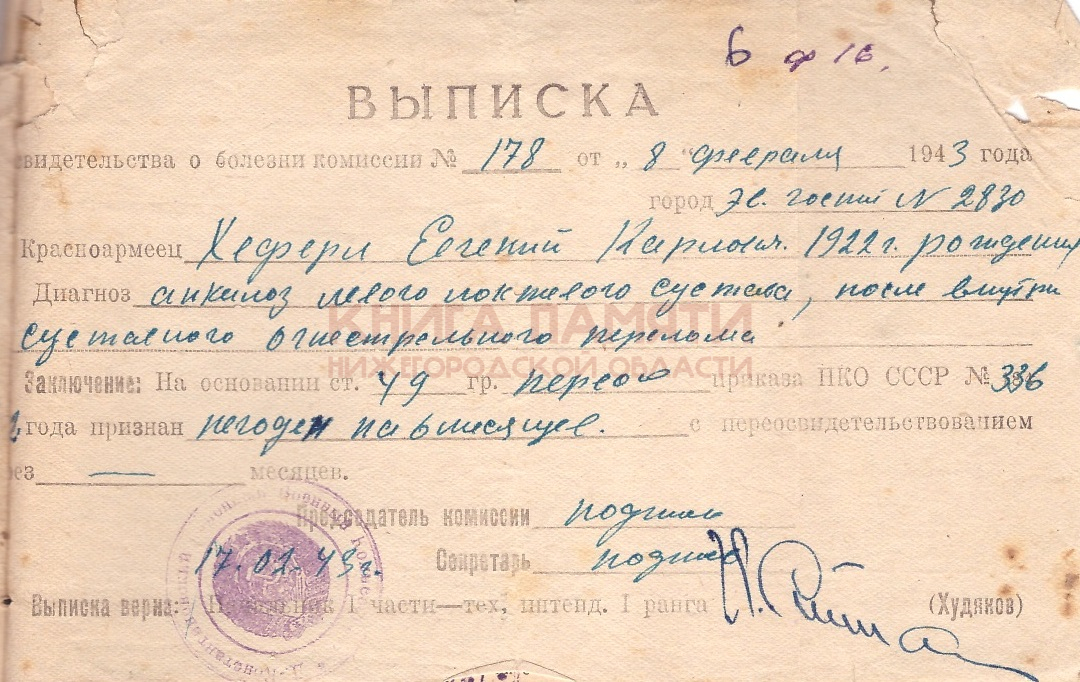 6 ф 16.
ВЫПИСКА
свидетельства о болезни комиссии № 178 от „ 8 " февраля 1943 года
город Эв. госпит N 2830
Красноармеец Хеферл Евгений 1922 г. рождения
Диагноз анкилоз левого локтевого сустава, после внутри
суставного огнестрельного перелома
КНИГА ПАМЯТИ
НИЖЕГОРОДСКОЙ ОБЛАСТИ
Заключение: На основании ст. 49 гр. первой приказа ПКО СССР № 336
года признан негоден на 6 месяцев. с переосвидетельствованием
ез — месяцев.
Председатель комиссии подпись
17.02.43 г. Секретарь подпись
Выписка верна: Начальник 1 части—тех, интенд. I ранга (Худяков)